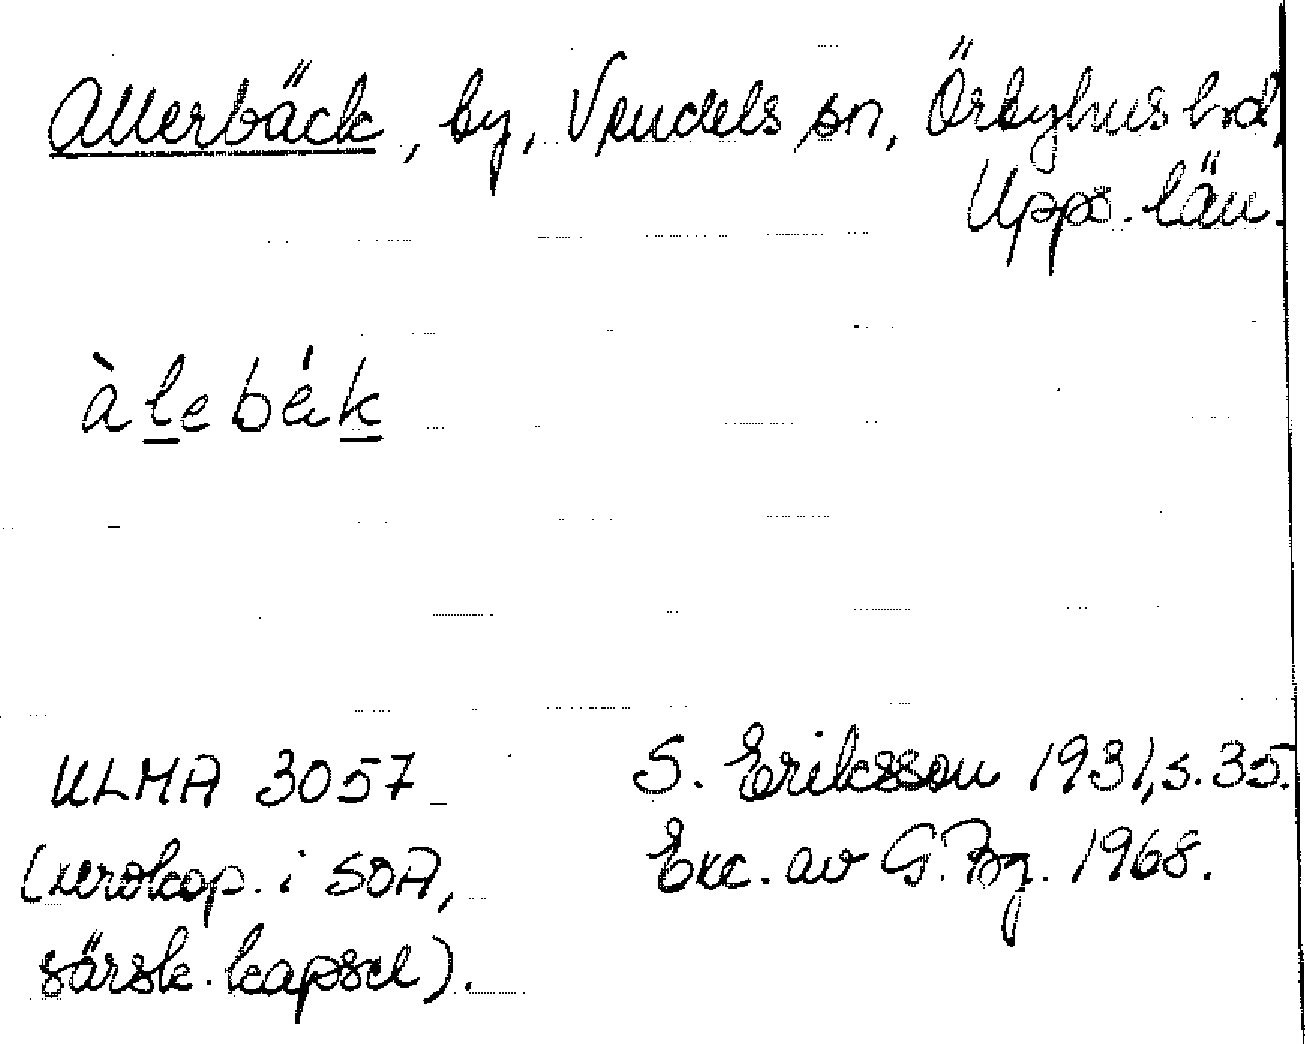 Allerbäck, by, Vendels sn, Örbyhus hd,
Upps. län.
àlebäk
ULMA 3057
S. Eriksson 1931, s. 35.
(xerokop. i SOA,
Exc. av G. 1968.
särsk. kapsel).